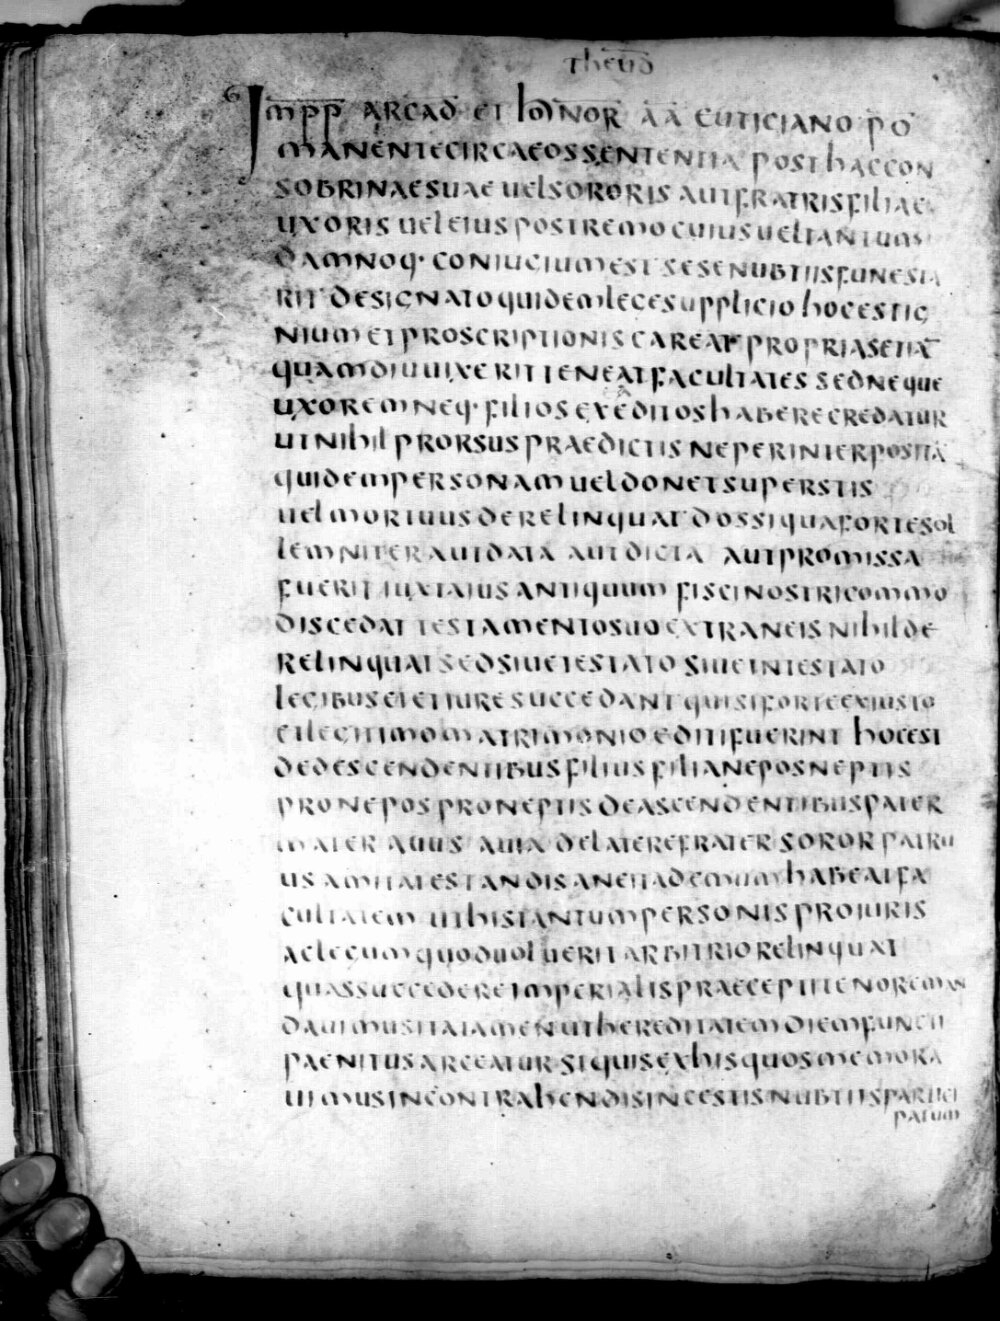 theud
IMPP ARCAD ET hONOR AA EUTICIANO PO
MANENTECIRCAEOSSENTENTIA POSThAECCON
SOBRINAESUAE UELSORORIS AUTFRATRISFILIAE
UXORIS UELEIUSPOSTREMOCUIUSUELTANTUMS
DAMNOQ· CONIUGIUMEST SESENUBTIISFUNESTA
RIT DESIGNATOQUIDEMLEGESUPPLICIO hOCESTIG
NIUMETPROSCRIPTIONISCAREAT PROPRIASETIA
QUAMDIUUIXERITTENEATFACULTATES SEDNEQUE
UXOREMNEQ· FILIOSEXEDITOShABERECREDATUR
UTNIhILPRORSUSPRAEDICTISNEPERINTERPOSITA
QUIDEMPERSONAMUELDONETSUPERSTIS
UELMORTUUSDERELINQUAT DOSSIQUAFORTESOL
LEMNITERAUTDATA AUTDICTA AUTPROMISSA
FUERIT IUXTAIUSANTIQUUM FISCINOSTRICOMMO
DISCEDAT TESTAMENTOSUOEXTRANEISNIhILDE
RELINQUATSEDSIUETESTATO SIUEINTESTATO
LEGIBUSEIETIURESUCCEDANT QUISIFORTEEXIUSTO
ETLEGITIMOMATRIMONIOEDITIFUERINT hOCEST
DEDESCENDENTIBUSFILIUSFILIANEPOSNEPTIS
PRONEPOSPRONEPTISDEASCENDENTIBUSPATER
MATER AUUS AUIA DELATEREFRATERSORORPATRU
USAMITATESTANDISANEITADEMUMhABEATFA
CULTATEM UThISTANTUMPERSONISPROIURIS
ACLEGUMQUODUOLUERITARBITRIORELINQUAT
QUASSUCCEDEREIMPERIALISPRAECEPTITENOREMAN
DAUIMUSITATAMENUThEREDITATEMDIEMFUNCTI
PAENITUSARCEATUR SIQUISEXhISQUOSMEMORA
UIMUSINCONTRAhENDISINCESTISNUBTIISPARTICI
PATUM